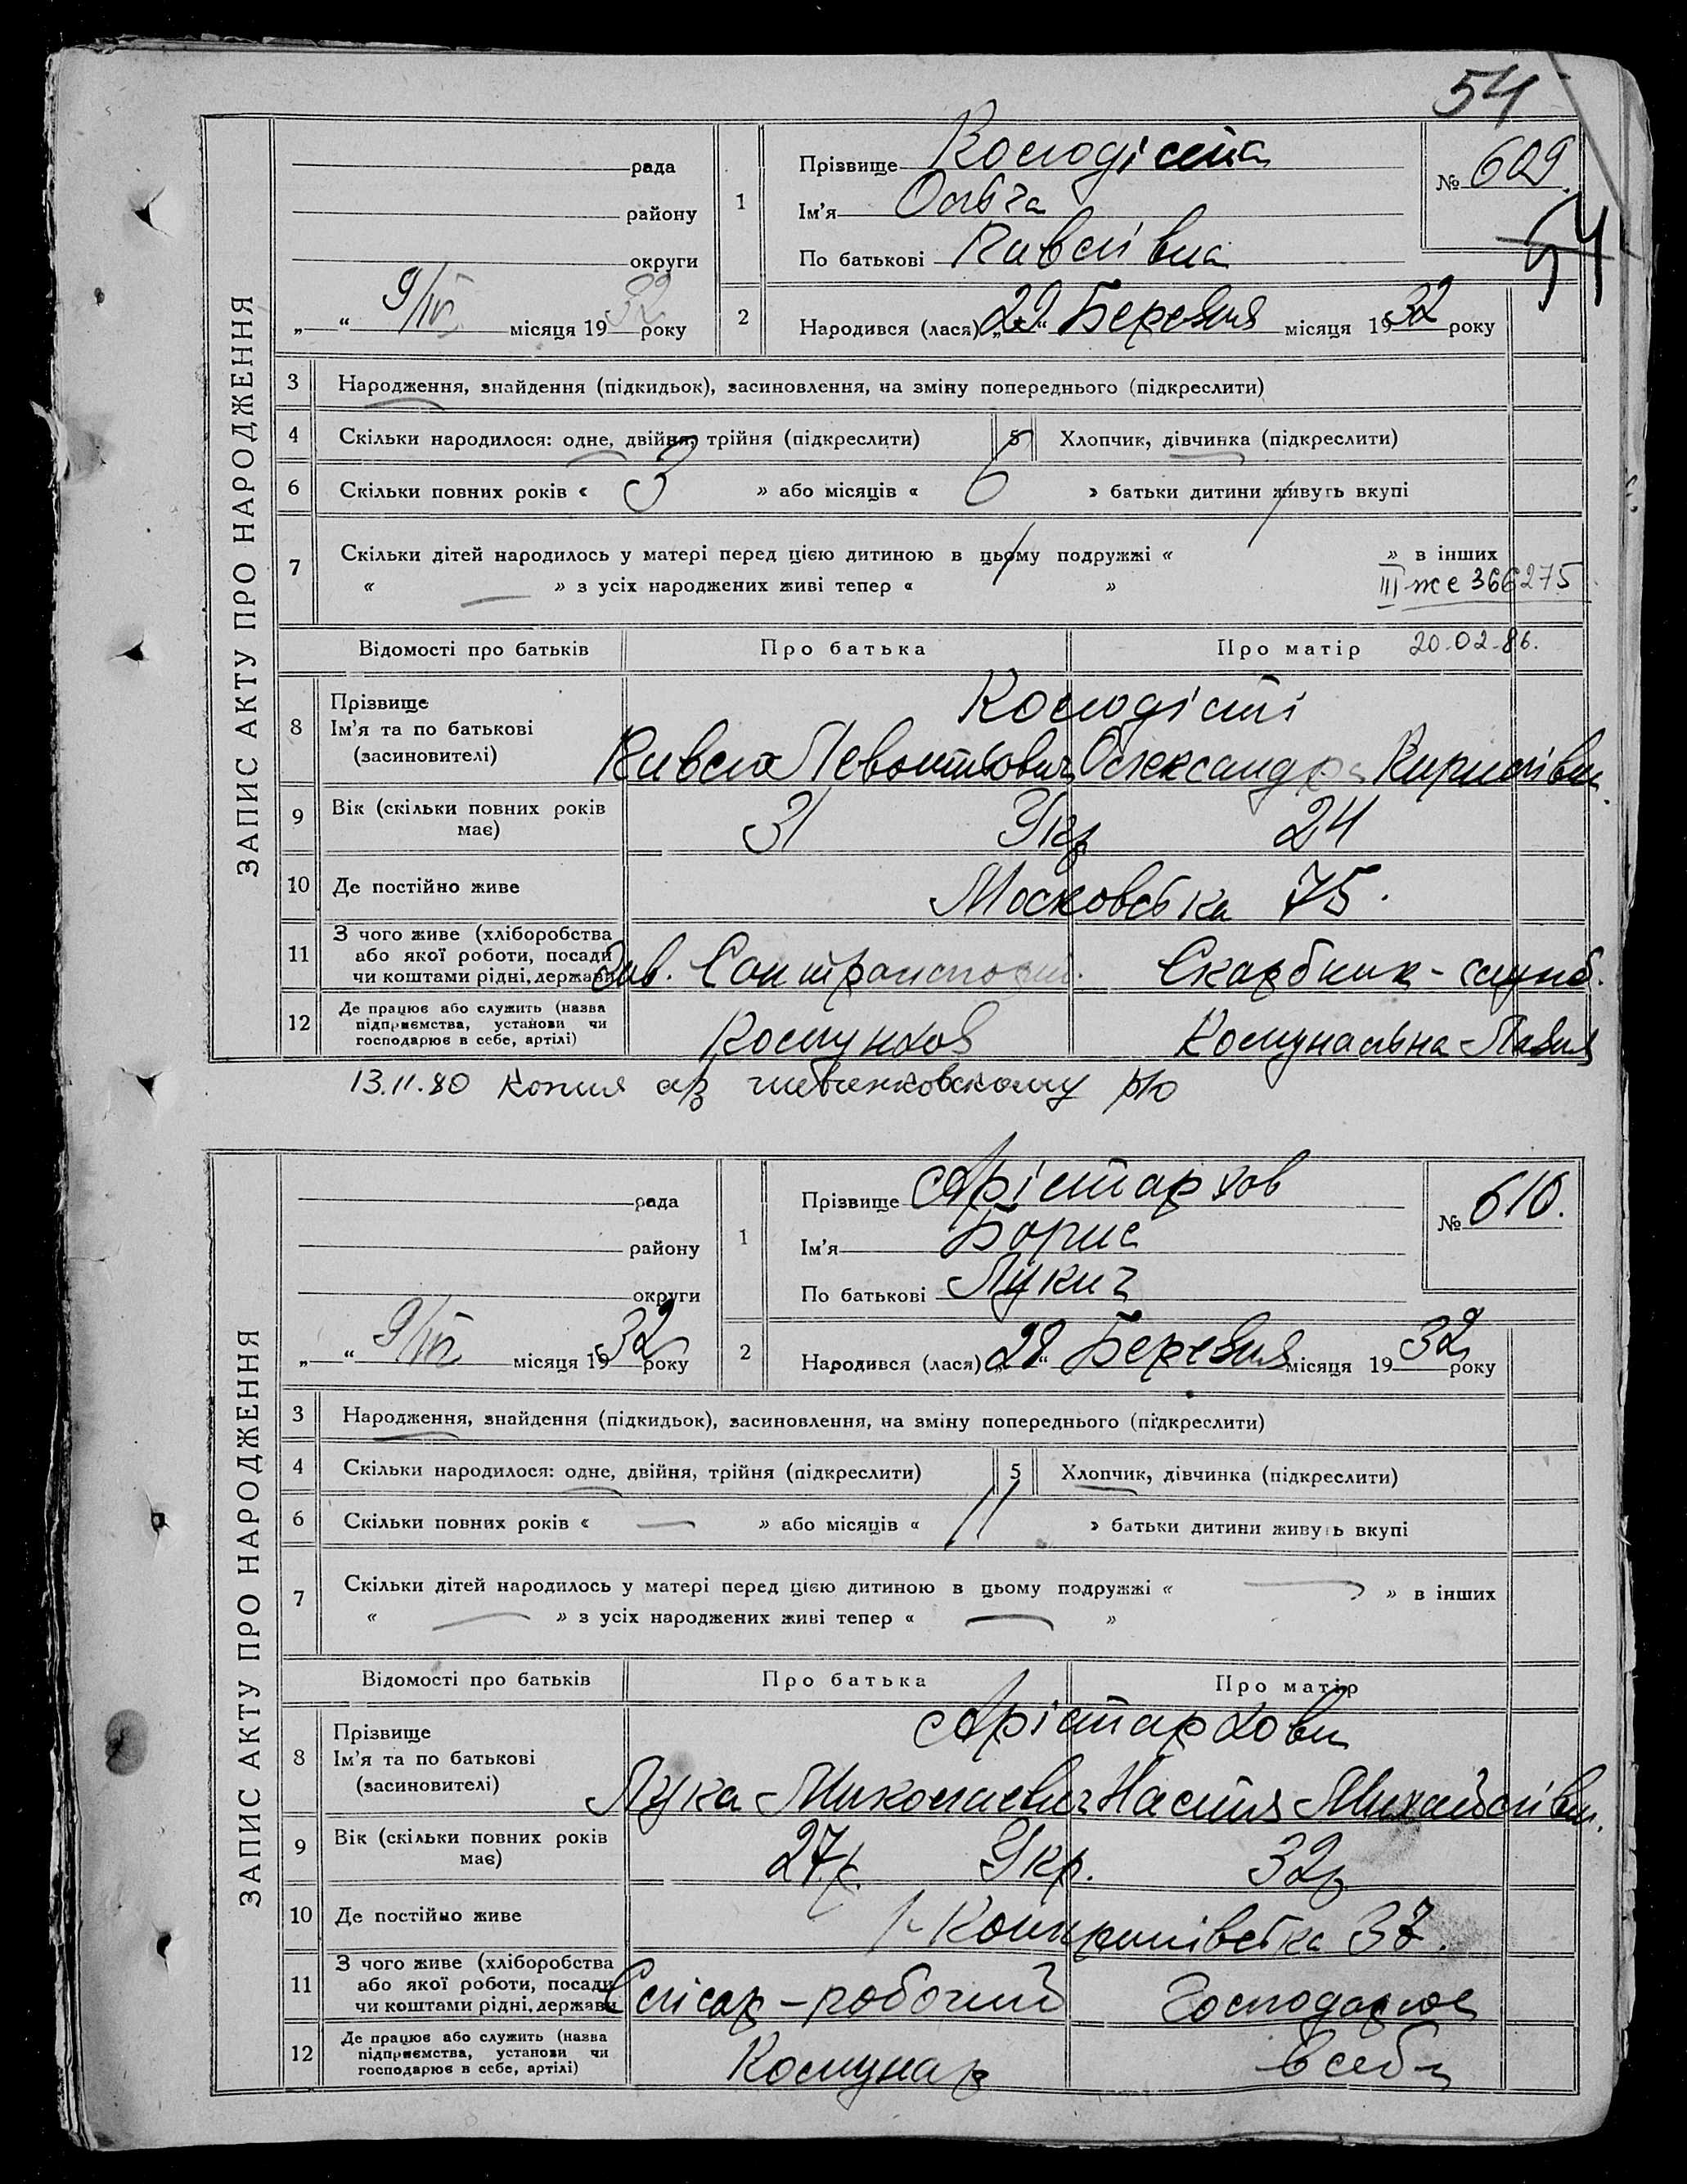 54
ЗАПИС АКТУ ПРО НАРОДЖЕННЯ
рада
району
округи
„ “ 9/IV місяця 1932 року
1
Прізвище
Ім'я Ольга
По батькові Павлівна
№ 609.
54
2
Народився (лася) „29“ Березня місяця 1932 року
3 Народження, знайдення (підкидьок), засиновлення, на зміну попереднього (підкреслити)
4 Скільки народилося: одне, двійня, трійня (підкреслити) 5 Хлопчик, дівчинка (підкреслити)
6 Скільки повних років « 3 » або місяців « 6 » батьки дитини живуть вкупі
7 Скільки дітей народилось у матері перед цією дитиною в цьому подружжі « » в інших
« — » з усіх народжених живі тепер « »
III же 366275
Відомості про батьків Про батька Про матір 20.02.86.
8 Прізвище
Ім'я та по батькові
(засиновителі)
Павло Левонтьович Олександра Кирилівна
9 Вік (скільки повних років має) 31 Укр 24
10 Де постійно живе Московська 75.
11 З чого живе (хліборобства або якої роботи, посади чи коштами рідні, держави Зав. Скарбник - служб.
12 Де працює або служить (назва підприємства, установи чи господарює в себе, артілі) Комунальна
13.11.80 копия а/з шевченковскому р/о
ЗАПИС АКТУ ПРО НАРОДЖЕННЯ
рада
району
округи
„ “ 9/IV місяця 1932 року
1
Прізвище Арістархов
Ім'я Борис
По батькові Лукич
№ 610.
2
Народився (лася) „28“ Березня місяця 1932 року
3 Народження, знайдення (підкидьок), засиновлення, на зміну попереднього (підкреслити)
4 Скільки народилося: одне, двійня, трійня (підкреслити) 5 Хлопчик, дівчинка (підкреслити)
6 Скільки повних років « — » або місяців « 11 » батьки дитини живуть вкупі
7 Скільки дітей народилось у матері перед цією дитиною в цьому подружжі « — » в інших
« — » з усіх народжених живі тепер « — »
Відомості про батьків Про батька Про матір
8 Прізвище Арістархови
Ім'я та по батькові
(засиновителі)
Лука Миколаєвич Настя Михайлівна
9 Вік (скільки повних років має) 27р. Укр. 32р
10 Де постійно живе 37.
11 З чого живе (хліборобства або якої роботи, посади чи коштами рідні, держави Слісар - робочий Господарює
12 Де працює або служить (назва підприємства, установи чи господарює в себе, артілі) Комунар в себе